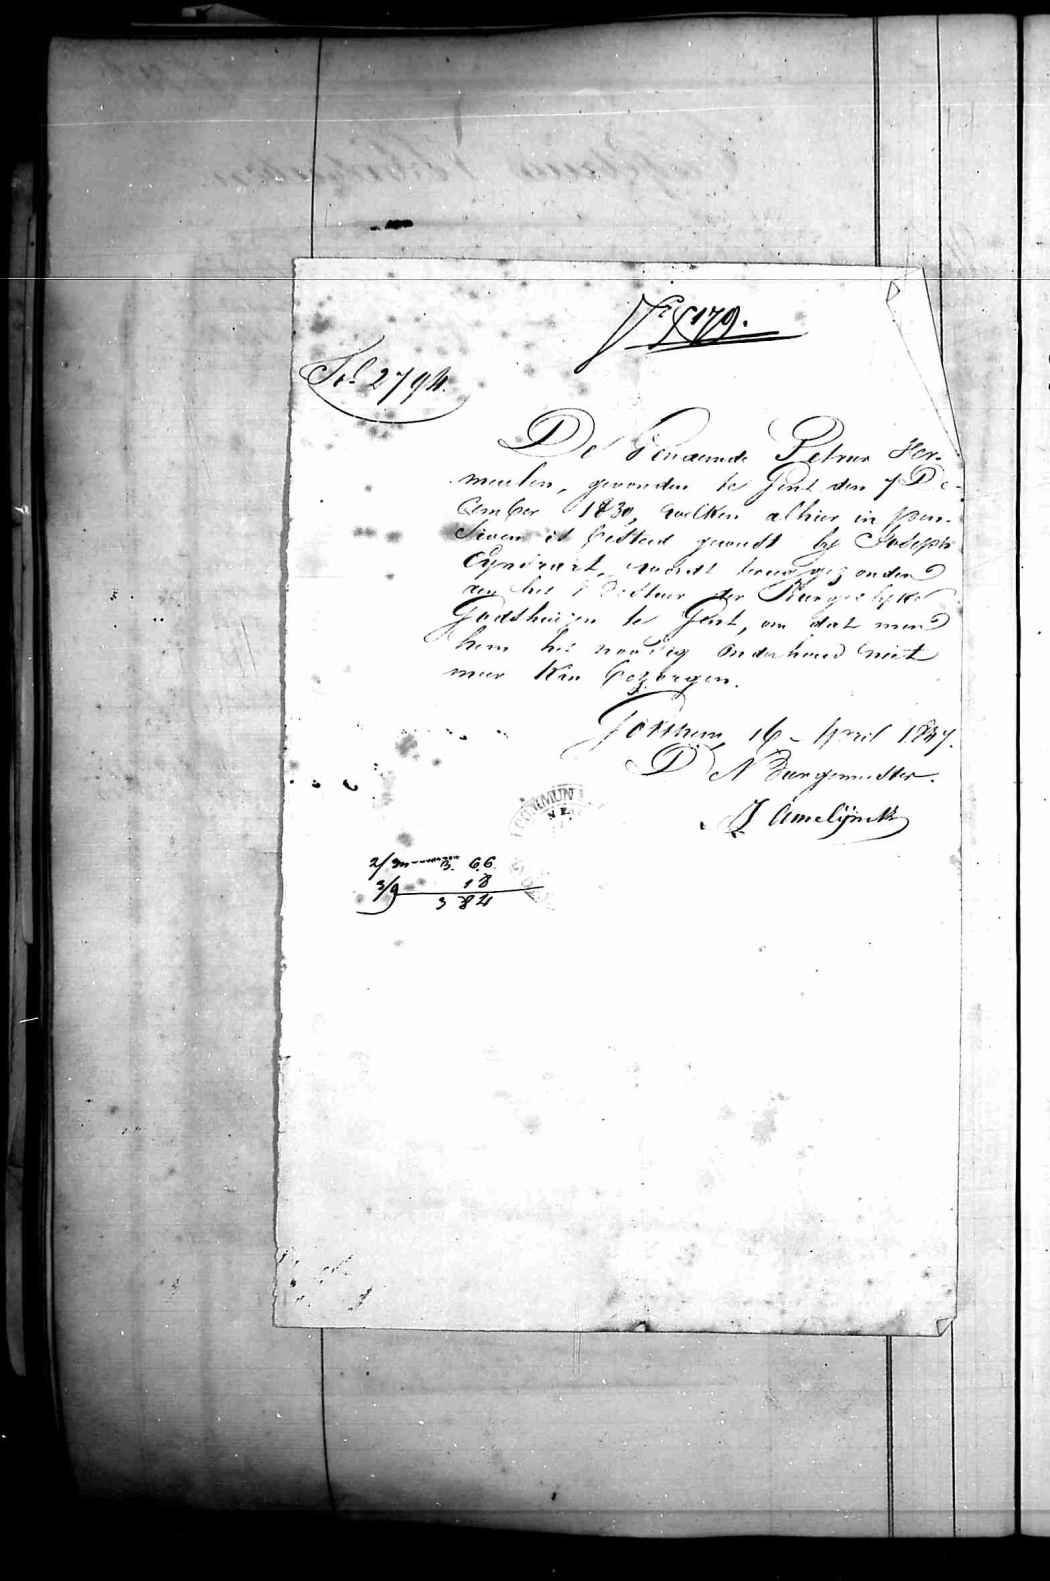 179.
Fol 2794.
De genaamde Petrus Her-
meulen, gevonden te Gent den 7 De-
cember 1830, welken alhier in pen-
sioen is besteed geweest by Joseph
wordt terug gezonden
aen het Bestuer der Burgerlyke
Godshuizen te Gent, om dat men
hem het noodig onderhoud niet
meer kan bezorgen.
16 April 1847.
De Burgemeester.
Amelÿnck
COMMUNE
2/3 66
3/9 18
3 84